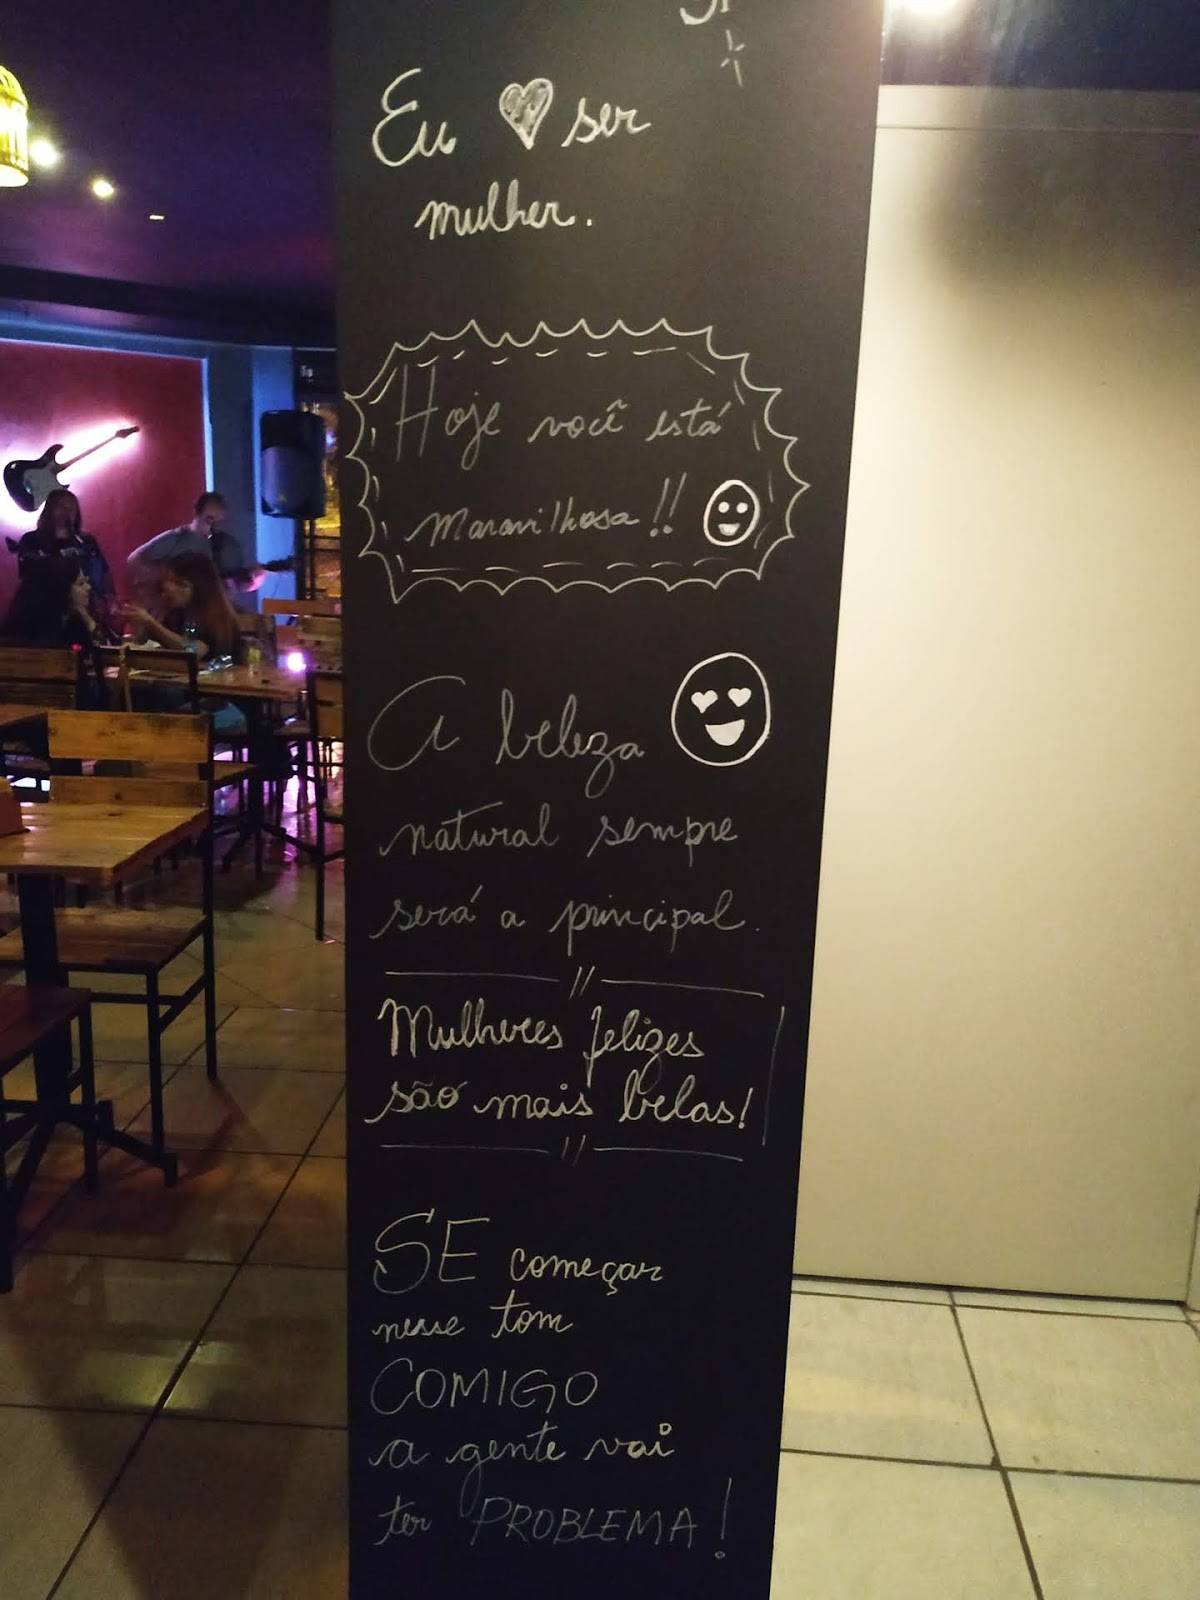 Eu ser
mulher.
Hoje você está
Maravilhosa!!
A beleza
natural sempre
será a principal.
Mulheres felizes
são mais belas!
SE começar
nesse tom
COMIGO
a gente vai
ter PROBLEMA!